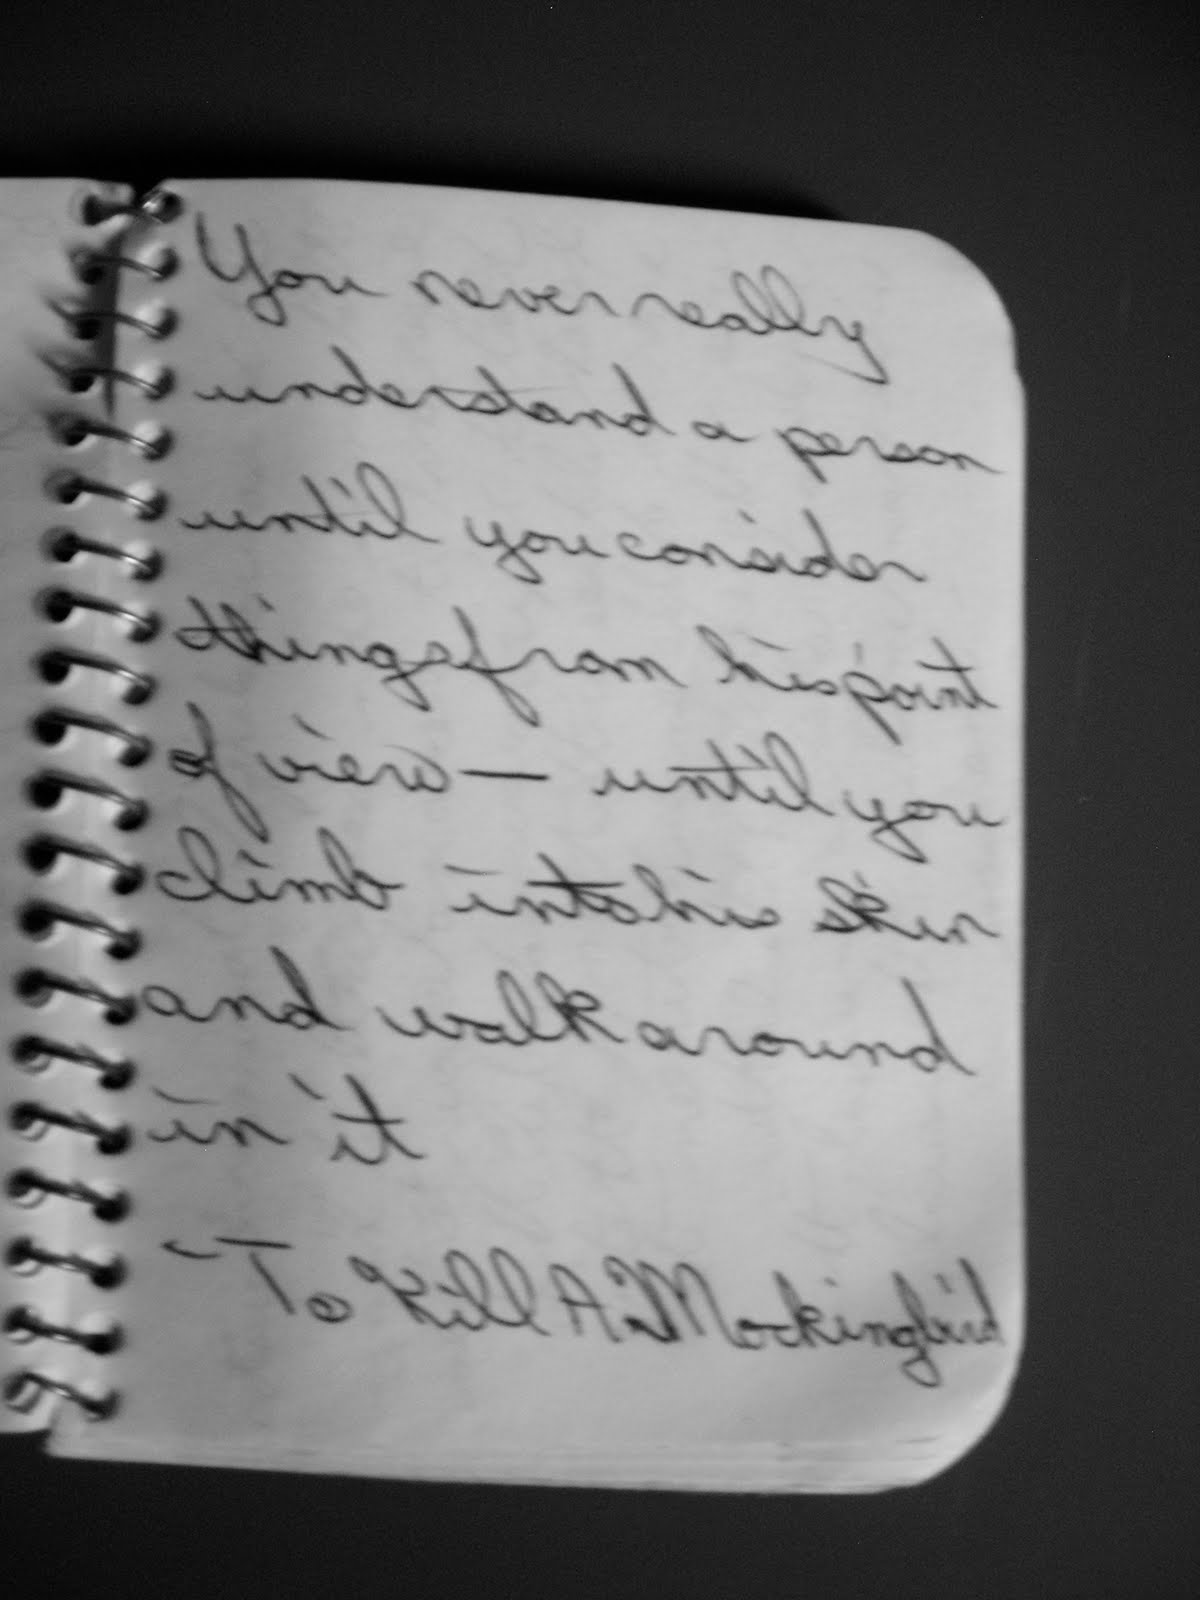 You never really
understand a person
until you consider
things from his point
of view — until you
climb into his skin
and walk around
in it
- To Kill A Mockingbird